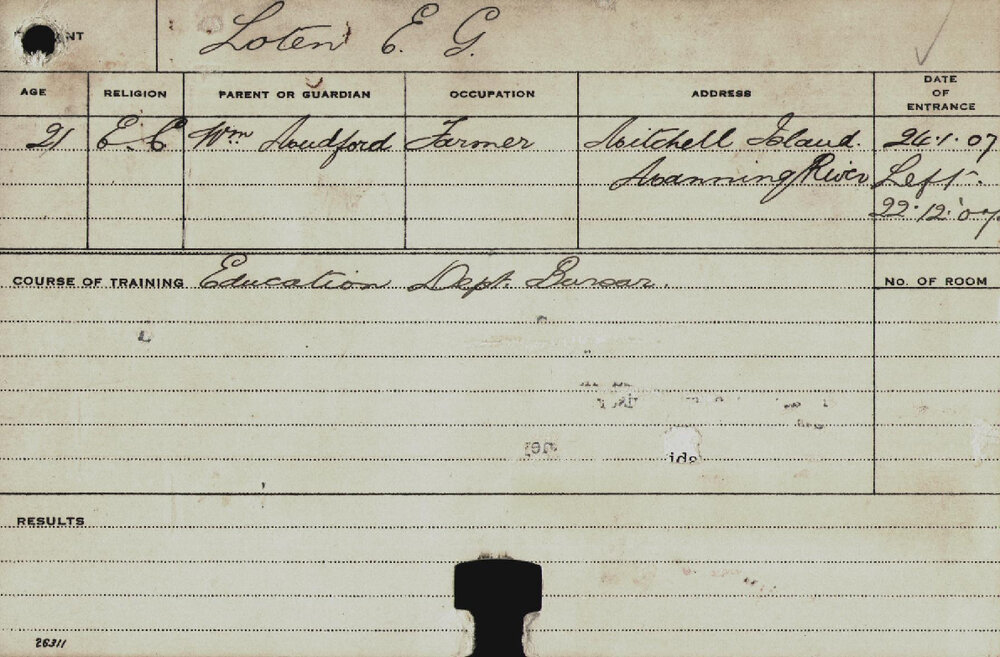 NT
Loten E. G.
AGE RELIGION PARENT OR GUARDIAN OCCUPATION ADDRESS DATE OF ENTRANCE
21 E.C Wm Mudford Farmer Mitchell Island. 24.1.07
Manning River Left
22.12.07
COURSE OF TRAINING Education Dept. Bursar. No. OF ROOM
ida
RESULTS
26311